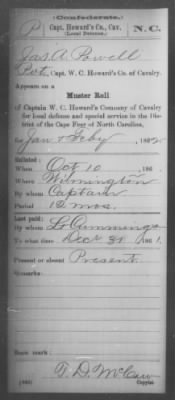 (Confederate.)
P Capt. Howard's Co., Cav. N. C.
(Local Defense.)
Jas. A. Powell
Pvt, Capt. W. C. Howard's Co. of Cavalry.
Appears on a
Muster Roll
of Captain W. C. Howard's Company of Cavalry
for local defense and special service in the Dis-
trict of the Cape Fear of North Carolina,
for Jan & Feby, 1862.
Enlisted:
When Oct 10, 186
Where Wilmington
By whom Captain
Period 12 mos.
Last paid:
By whom Lt. Cummings
To what time Dec 31, 1861.
Present or absent Present
Remarks:
Book mark:
T. D. McCaw
Copyist.